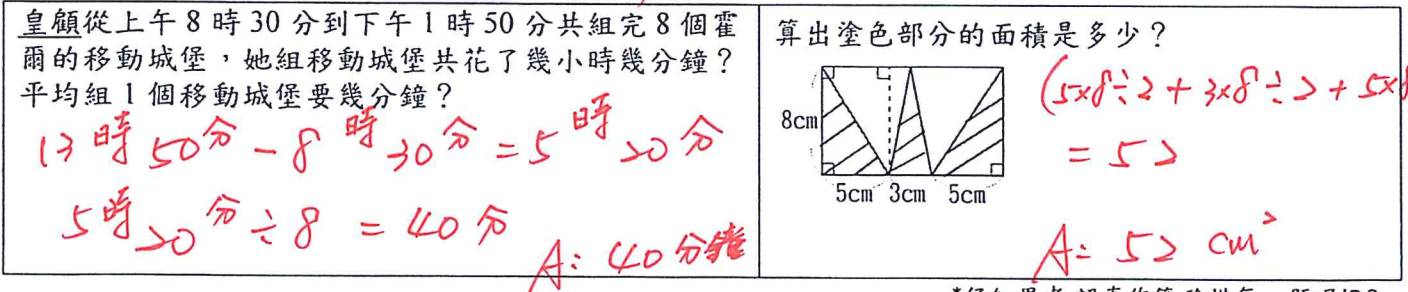 皇顧從上午8時30分到下午1時50分共組完8個霍
爾的移動城堡，她組移動城堡共花了幾小時幾分鐘？
平均組1個移動城堡要幾分鐘？
13時50分-8時30分=5時20分
5時20分÷8=40分
A:40分鐘
算出塗色部分的面積是多少？
8cm
5cm 3cm 5cm
(5×8÷2+3×8÷2+5×8
=52
A:52 cm²